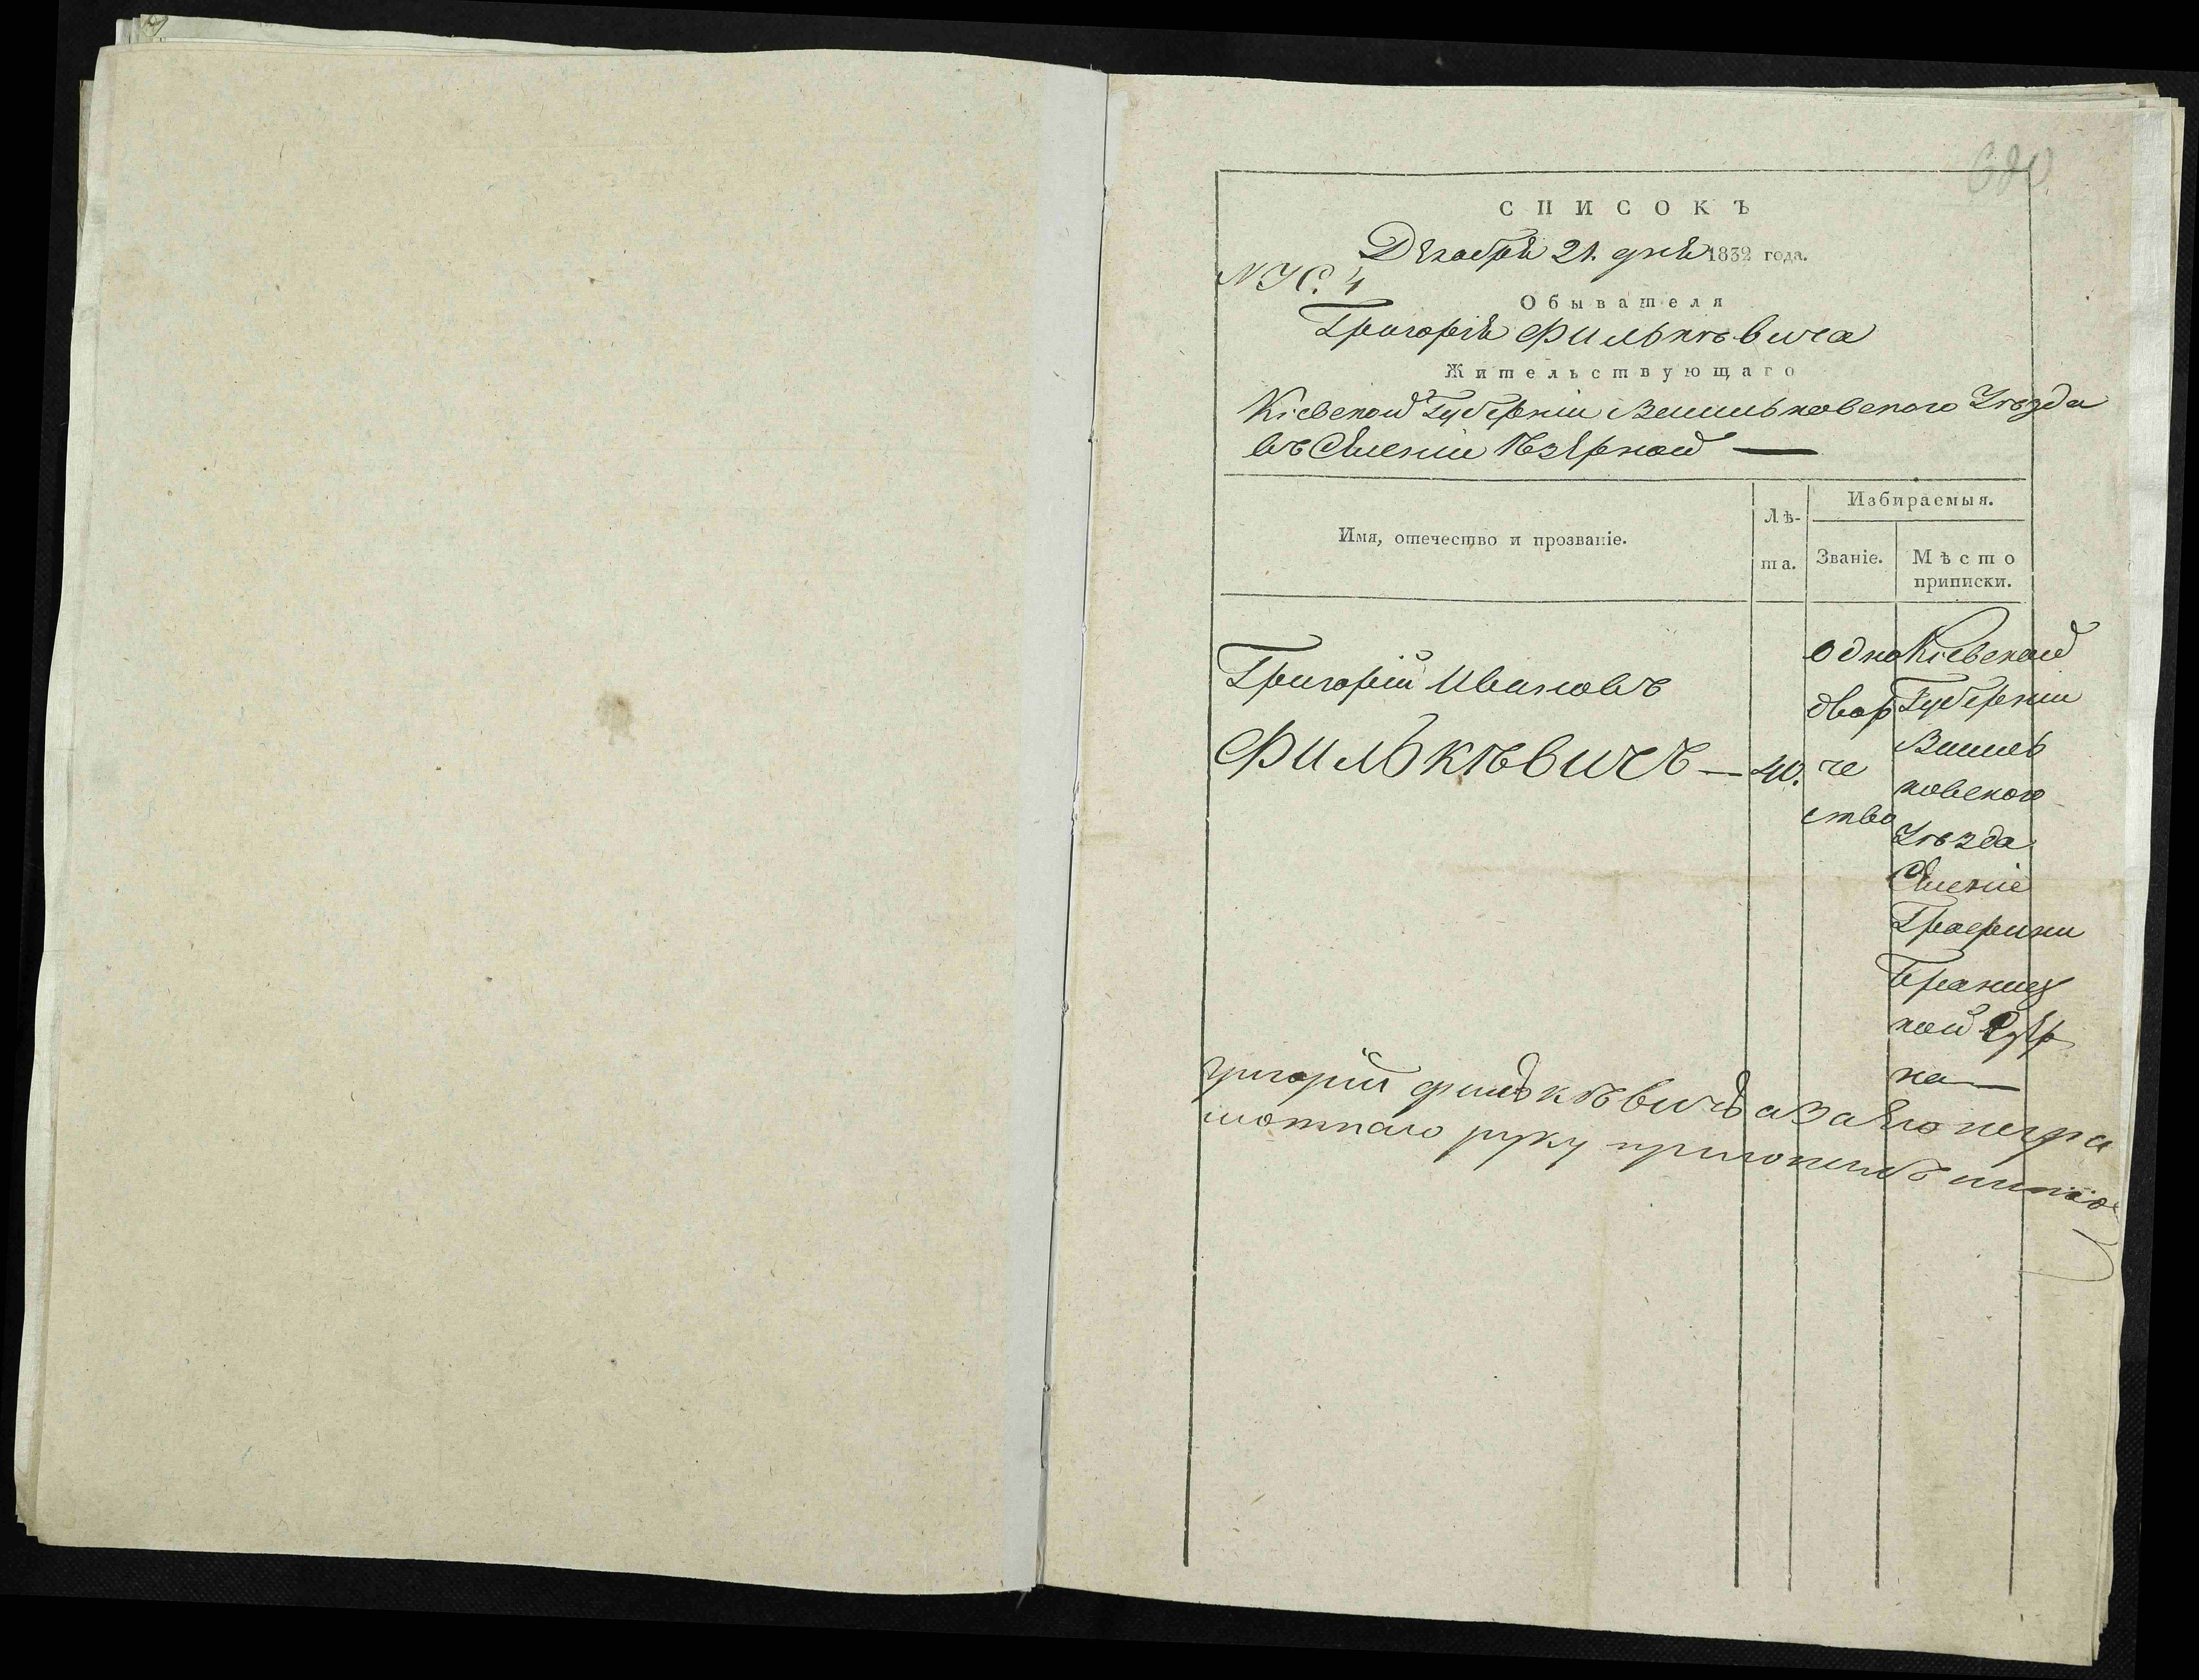 680
СПИСОКЪ
Декабря 21. дня 1832 года.
Обывателя
Григорія Филькѣвича
Жительствующаго
Кіевской Губерніи Васильковскаго Уѣзда
въ Селеніи
Имя, отечество и прозваніе.
Лѣ-
та.
Избираемыя.
Званіе.
Мѣсто
приписки.
Григорій Ивановъ
Филькѣвичъ — 40.
одно
двор
че
ство
Кіевской
Губерніи
Василь
ковскаго
Уѣзда
Селеніе
Графини
Браниц
кой
на —
григорій филькѣвичъ а за его негра
мотнаго руку приложилъ